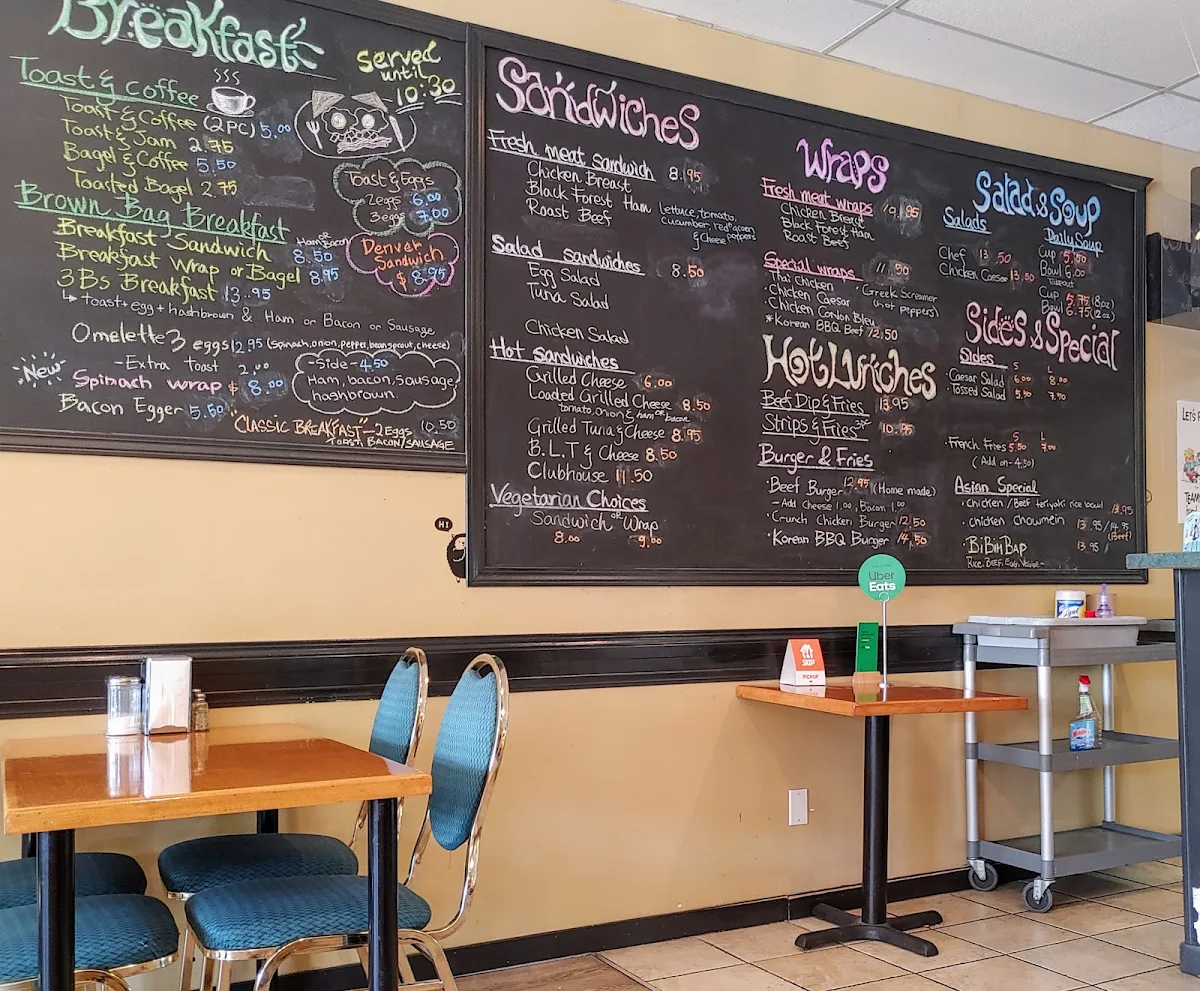 Breakfast
served
until
10:30
Toast & coffee
Toast & Coffee (2PC) 5.00
Toast & Jam 2.75
Bagel & Coffee 5.50
Toasted Bagel 2.75
Toast & Eggs
2eggs 6.00
3eggs 7.00
Brown Bag Breakfast
Ham or Bacon
Breakfast Sandwich 8.50
Breakfast Wrap or Bagel 8.95
3 Bs Breakfast 13.95
toast + egg + hashbrown & Ham or Bacon or Sausage
Denver
Sandwich
$ 8.95
Omelette 3 eggs 12.95 (spinach, onion, pepper, bean sprout, cheese)
-Extra toast 2.00
"New" Spinach wrap $ 8.00
Bacon Egger 5.50
-Side- 4.50
Ham, bacon, sausage,
hashbrown.
"CLASSIC BREAKFAST" - 2 Eggs 10.50
TOAST, BACON/SAUSAGE
Sandwiches
Fresh meat sandwich 8.95
Chicken Breast
Black Forest Ham
Roast Beef
Lettuce, tomato,
cucumber, red & green peppers
& Cheese
Salad sandwiches 8.50
Egg Salad
Tuna Salad
Chicken Salad
Hot sandwiches
Grilled Cheese 6.00
Loaded Grilled Cheese 8.50
tomato, onion & ham or bacon
Grilled Tuna & Cheese 8.95
B.L.T & Cheese 8.50
Clubhouse 11.50
Vegetarian Choices
Sandwich or Wrap
8.00 9.00
Wraps
Fresh meat wraps
Chicken Breast
Black Forest Ham
Roast Beef
Special wraps 11.50
Thai Chicken
Chicken Caesar
Chicken Cordon Bleu
Greek Screamer
(Hot Peppers)
*Korean BBQ Beef 12.50
Hot Lunches
Beef Dip & Fries 13.95
Strips & Fries 3pc 10.95
Burger & Fries
Beef Burger 12.95 (Home made)
- Add Cheese 1.00, Bacon 1.00
Crunch Chicken Burger 12.50
Korean BBQ Burger 14.50
Salad & Soup
Salads
Chef 13.50
Chicken Caesar 13.50
Daily Soup
Cup 5.50
Bowl 6.00
Takeout
Cup 5.75 (8oz)
Bowl 6.75 (12oz)
Sides & Special
Sides S L
Caesar Salad 6.00 8.00
Tossed Salad 5.50 7.50
S L
French Fries 5.50 7.00
(Add on - 4.50)
Asian Special
chicken / Beef teriyaki rice bowl 13.95
chicken chowmein 13.95 / 14.95
(Beef)
BiBimBap 13.95
Rice, Beef, Egg, Veggie
HI
Uber
Eats
SKIP
PICKUP
Lysol
Windex